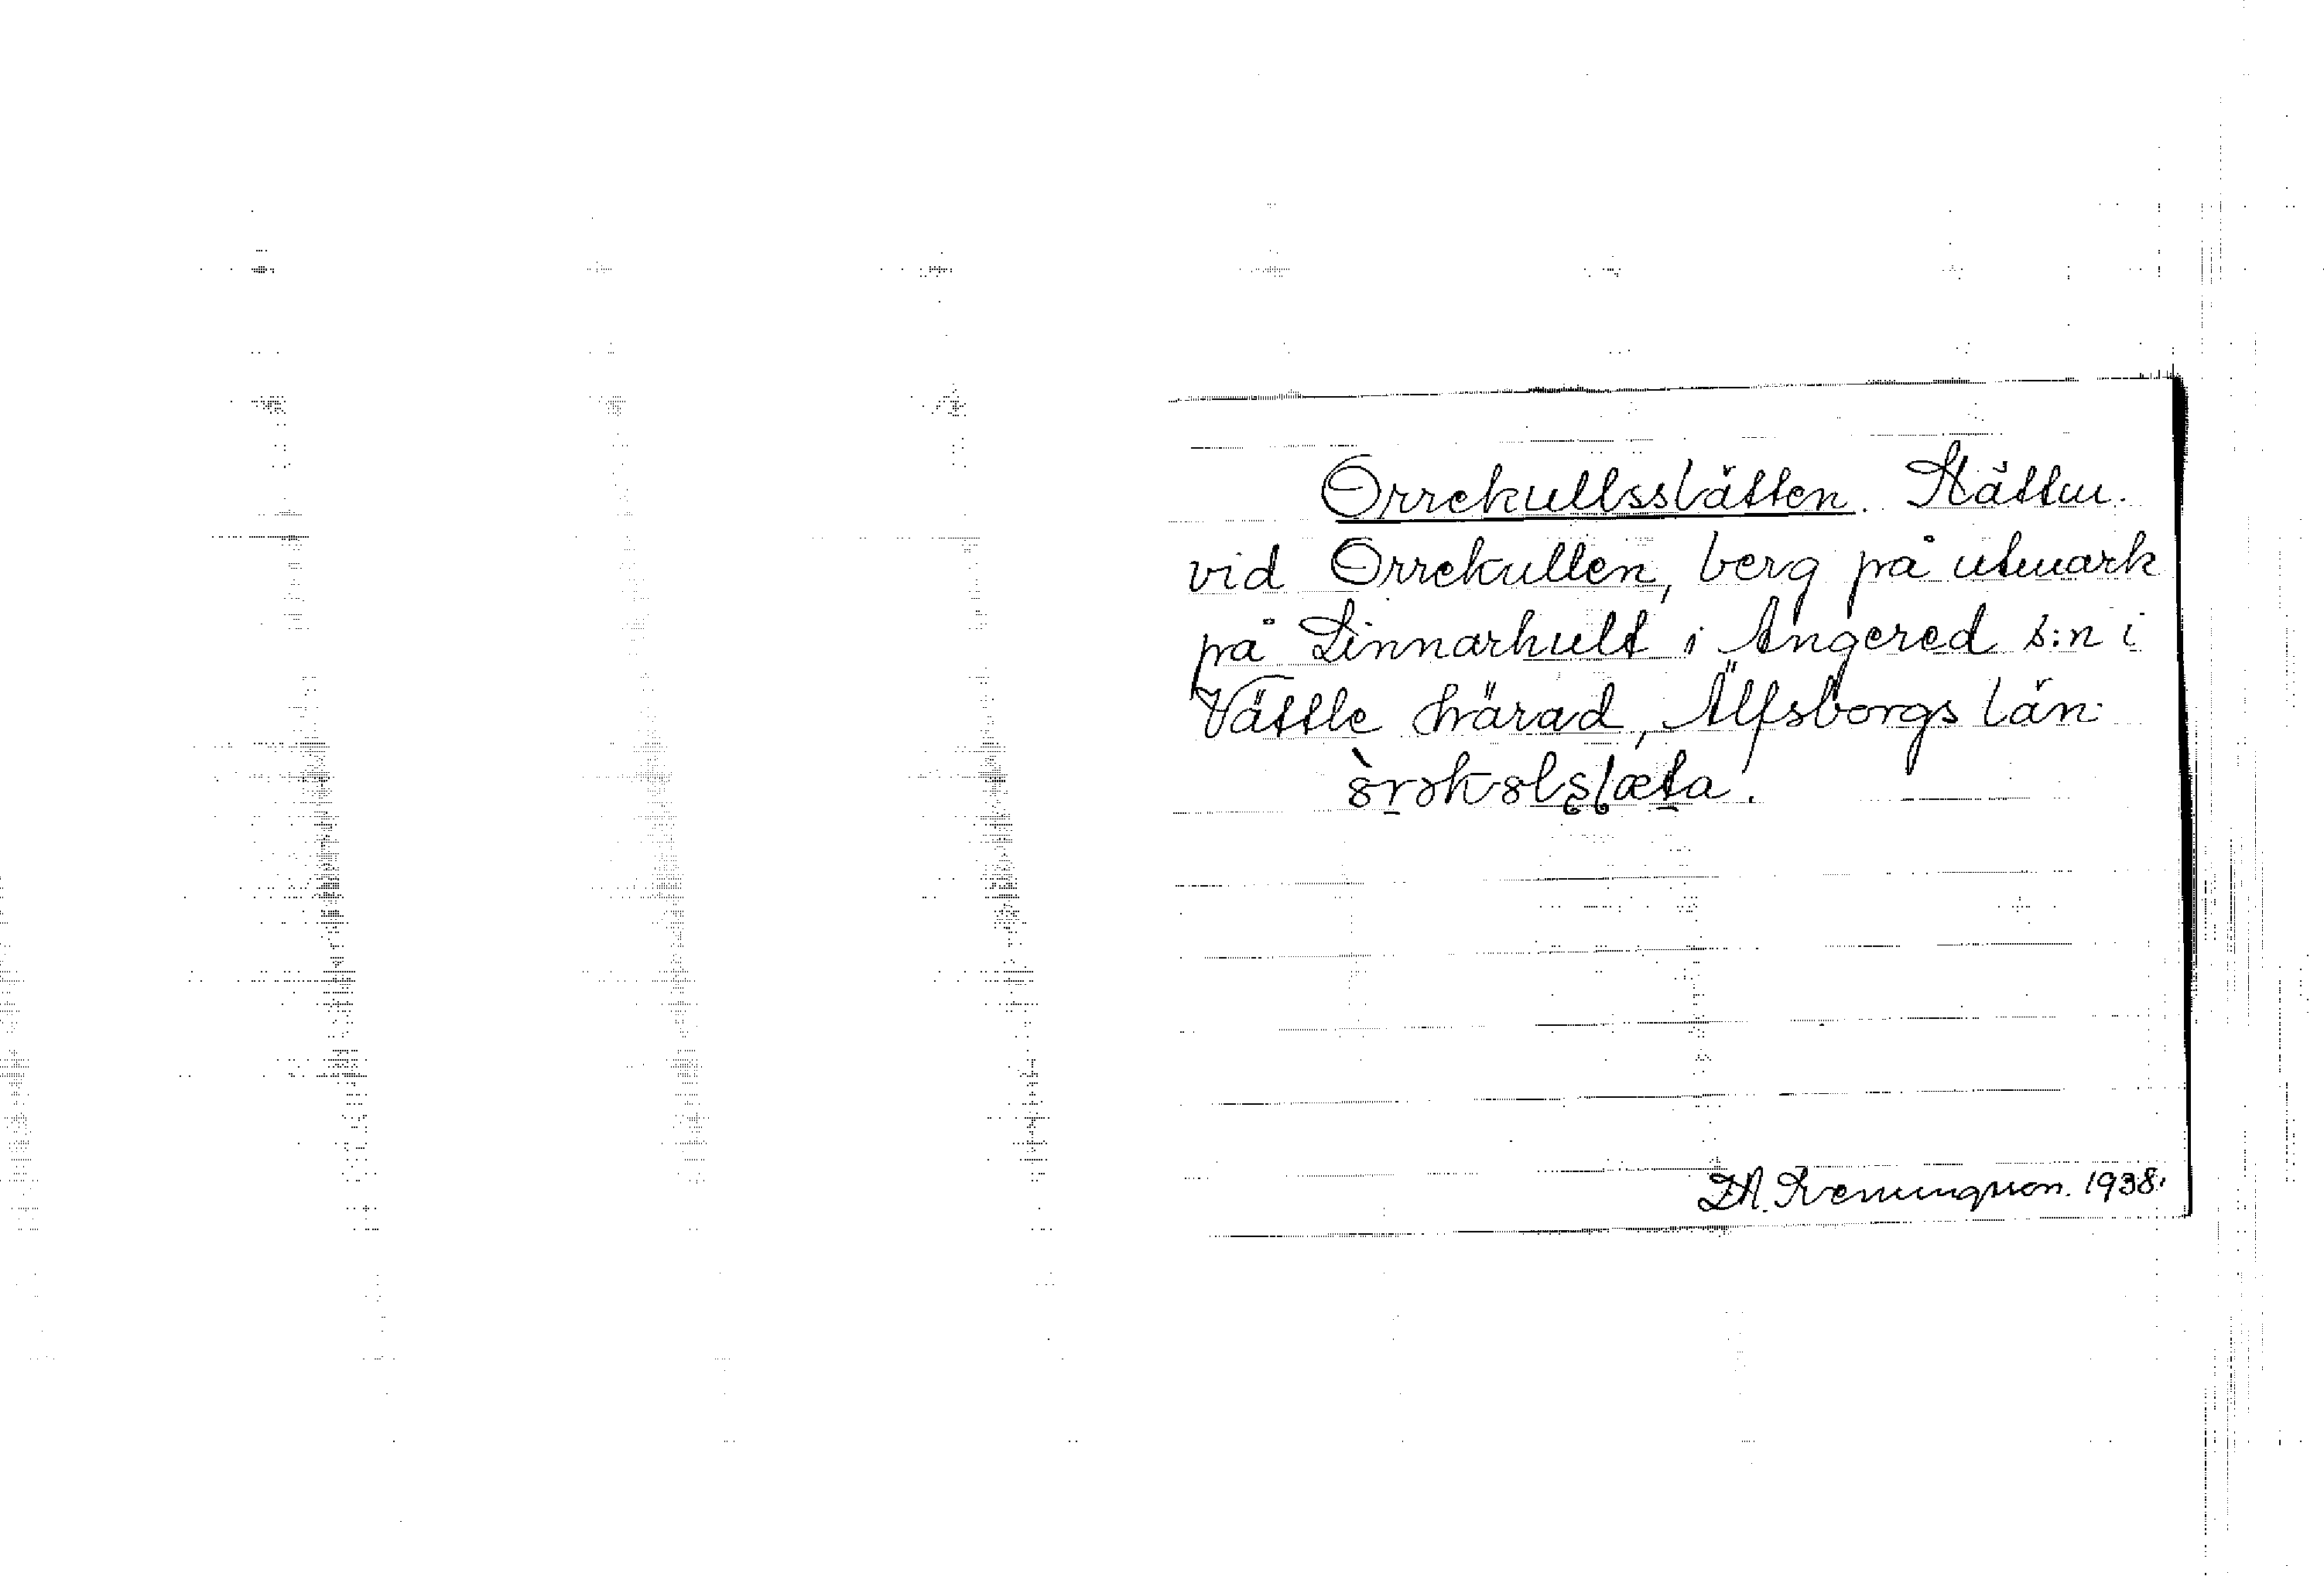 Orrekullsslätten. Slätten.
vid Orrekullen, berg på utmark
på Linnarhult i Angered s:n i
Vättle härad, Älfsborgs län
1938.